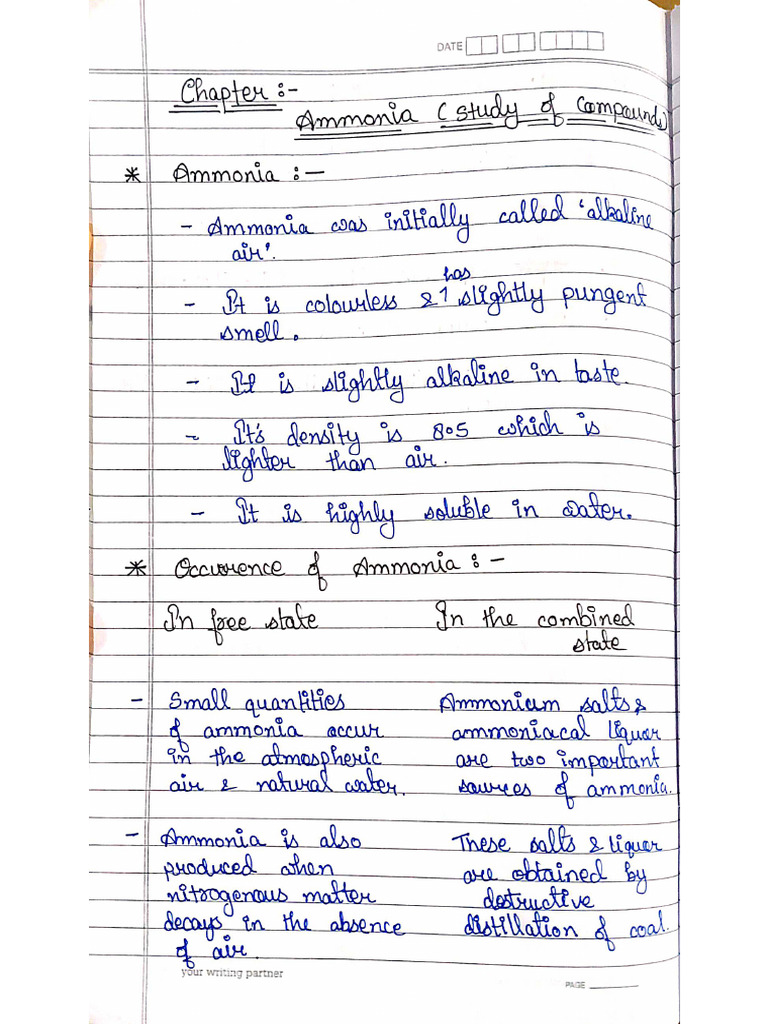 DATE
Chapter :-
Ammonia ( Study of Compounds)
* Ammonia :-
- Ammonia was initially called 'alkaline
air'.
has
- It is colourless & 1 slightly pungent
smell.
- It is slightly alkaline in taste.
- It's density is 8.5 which is
lighter than air.
- It is highly soluble in water.
* Occurence of Ammonia :-
In free state
- Small quantities
of ammonia occur
in the atmospheric
air & natural water.
- Ammonia is also
produced when
nitrogenous matter
decays in the absence
of air.
In the combined
state
Ammonium salts &
ammoniacal liquor
are two important
sources of ammonia.
These salts & liquor
are obtained by
destructive
distillation of coal.
your writing partner
PAGE